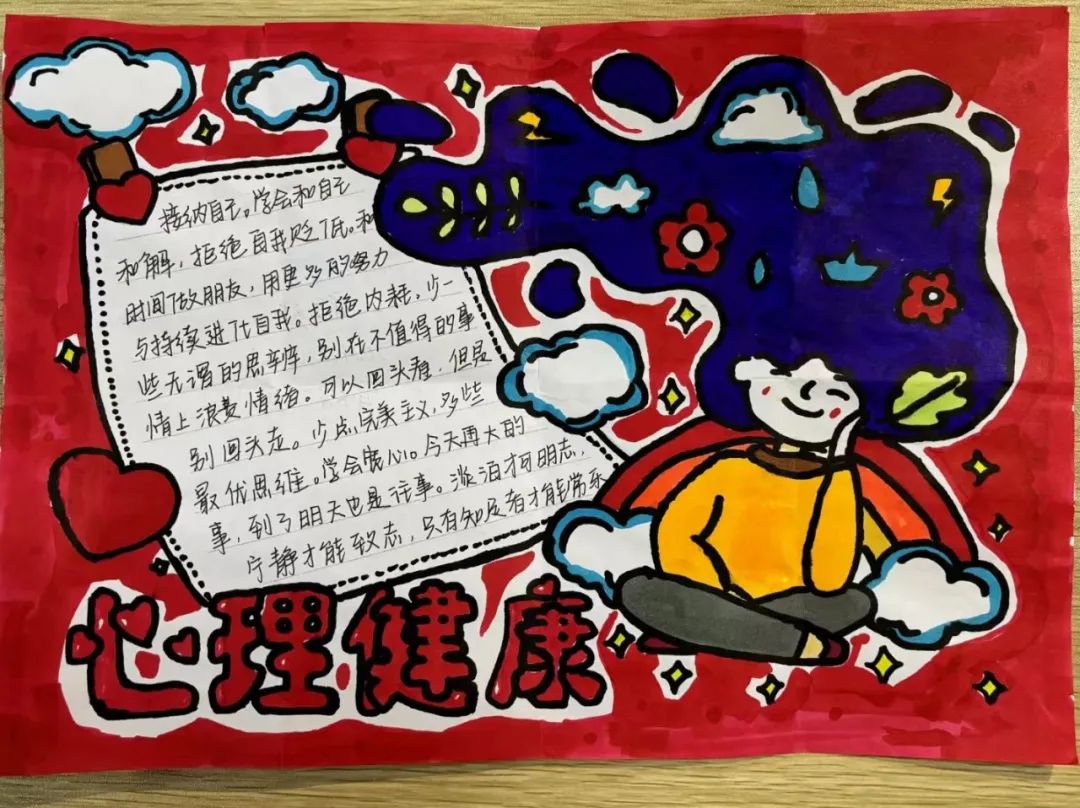 接纳自己。学会和自己
和解，拒绝自我贬低。和
时间做朋友，用更多的努力
与持续进化自我。拒绝内耗，少一
些无谓的思辨，别在不值得的事
情上浪费情绪。可以回头看，但是
别回头走。少点完美主义，多些
最优思维。学会宽心。今天再大的
事，到了明天也是往事。淡泊才可明志，
宁静才能致志，只有知足者才能常乐
心理健康